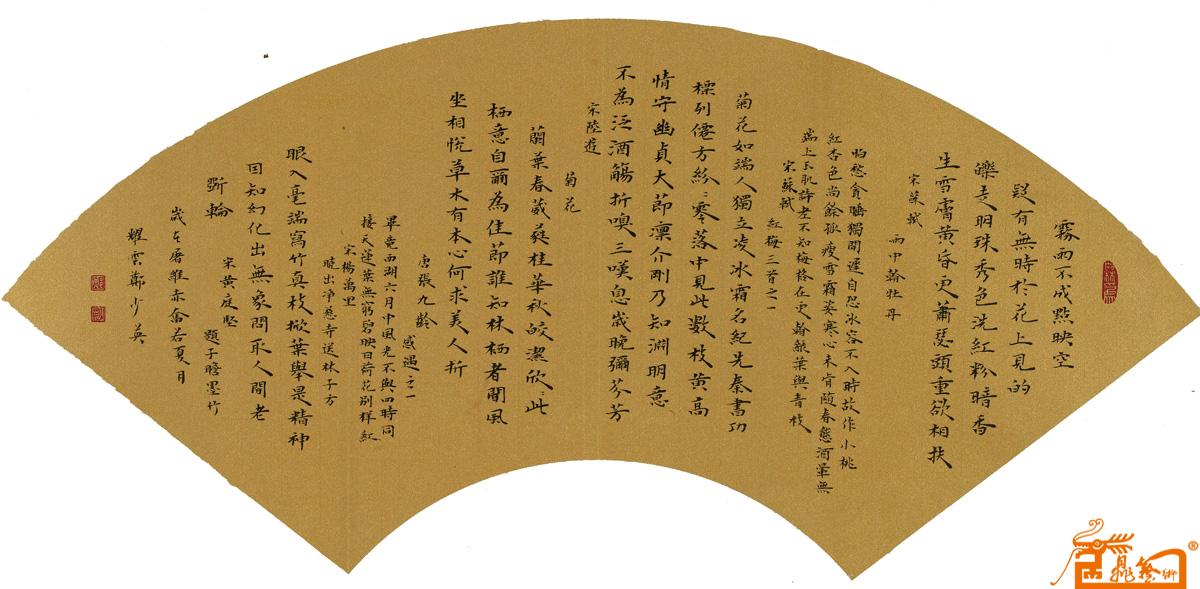 霧雨不成點映空
疑有無時於花上見的
皪走明珠秀色洗紅粉暗香
生雪膚黃昏更蕭瑟頭重欲相扶
宋蘇軾
雨中看牡丹
怕愁貪睡獨開遲自恐冰容不入時故作小桃
紅杏色尚餘孤瘦雪霜姿寒心未肯隨春態酒暈無
端上玉肌詩老不知梅格在更看綠葉與青枝
宋蘇軾
紅梅三首之一
菊花如端人獨立凌冰霜名紀先秦書功
標列僊方紛〻零落中見此數枝黃高
情守幽貞大節凜介剛乃知淵明意
不為泛酒觴折嗅三嘆息歲晚彌芬芳
宋陸遊
菊花
蘭葉春葳蕤桂華秋皎潔欣〻此
栖意自爾為佳節誰知林栖者聞風
坐相悅草木有本心何求美人折
唐張九齡
感遇之一
畢竟西湖六月中風光不與四時同
接天蓮葉無窮碧映日荷花別樣紅
宋楊萬里
曉出净慈寺送林子方
眼入毫端寫竹真枝掀葉舉是精神
因知幻化出無象問取人間老
斲輪
宋黃庭堅
題子瞻墨竹
歲在屠維赤奮若夏月
耀雲鄭少英